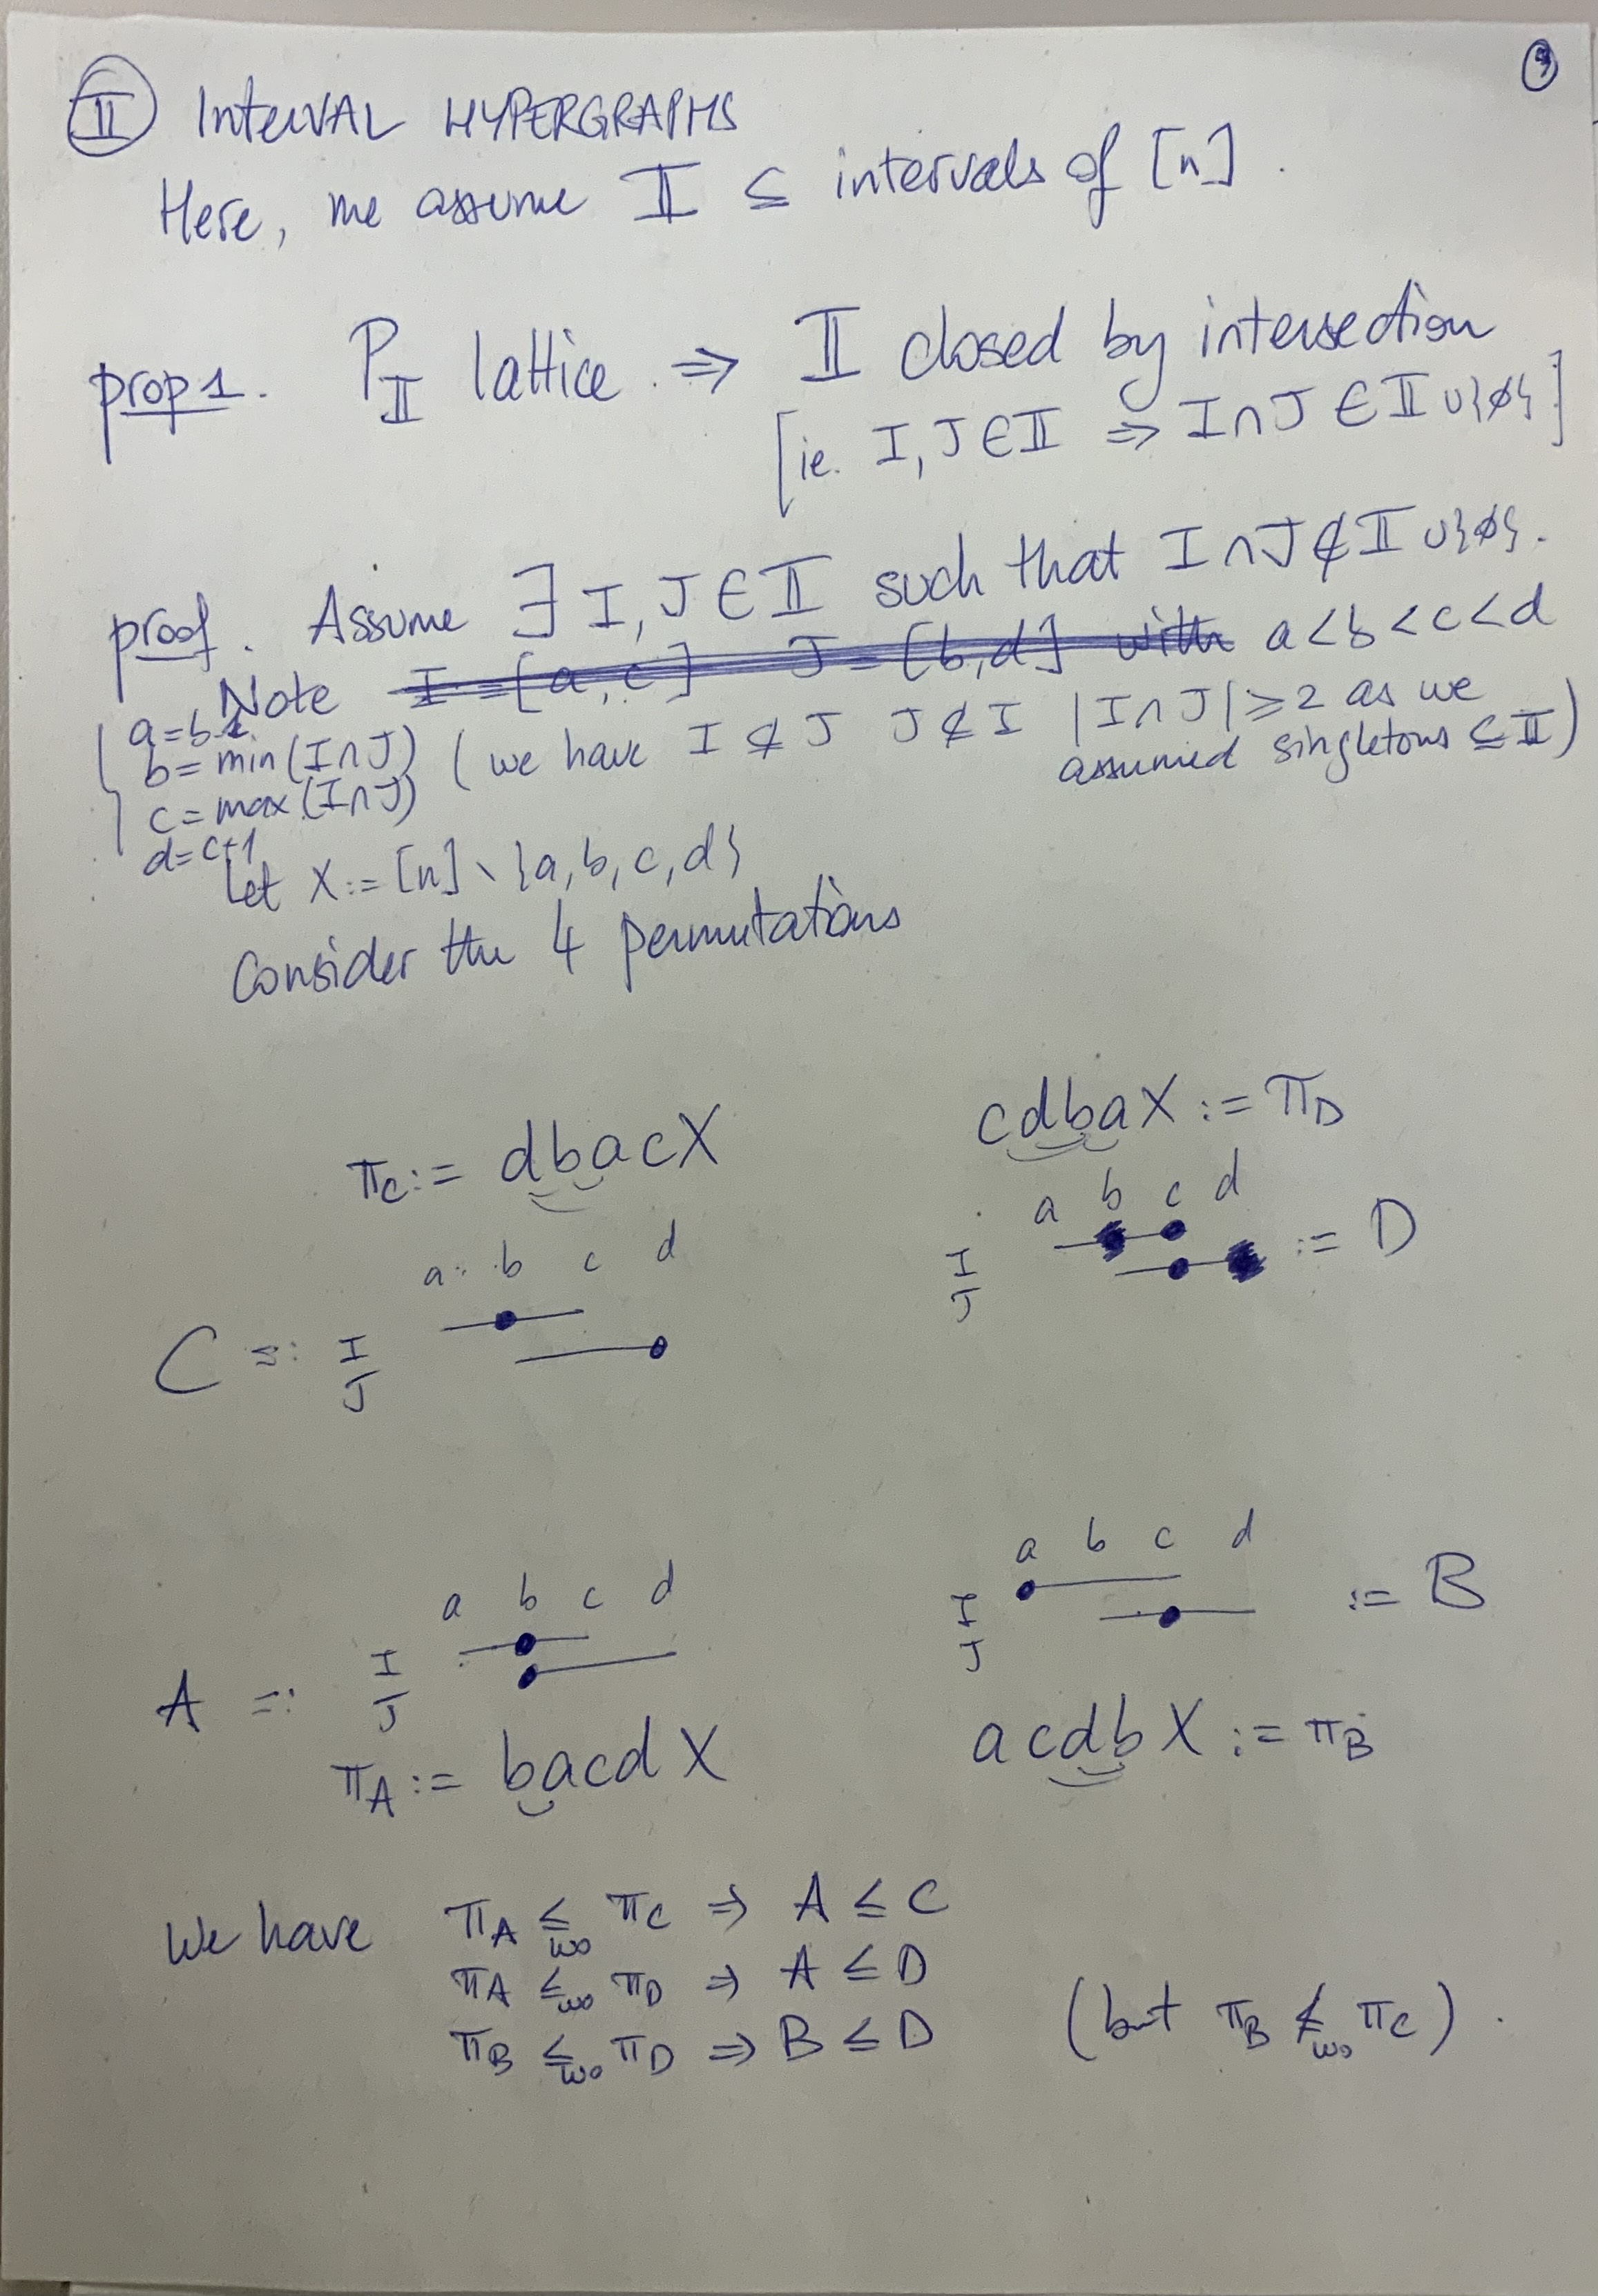 9
II INTERVAL HYPERGRAPHS
Here, we assume 𝕀 ⊆ intervals of [n].
prop 1. P_𝕀 lattice ⇒ 𝕀 closed by intersection
[ie. I, J ∈ 𝕀 ⇒ I∩J ∈ 𝕀 ∪ {∅}]
proof. Assume ∃ I, J ∈ 𝕀 such that I∩J ∉ 𝕀 ∪ {∅}.
Note I = [a,c] J = [b,d] with a<b<c<d
a=b-1
b=min(I∩J) (we have I ⊄ J J ⊄ I |I∩J| ⩾ 2 as we
c=max(I∩J) assumed singletons ⊆ 𝕀)
d=c+1
Let X := [n] \ {a,b,c,d}
Consider the 4 permutations
π_C := dbacX
cdbaX := π_D
a b c d
C =: I
J
a b c d
I
J := D
a b c d
A =: I
J
π_A := bacdX
a b c d
I
J := B
acdbX := π_B
We have π_A ≤_wo π_C ⇒ A ≤ C
π_A ≤_wo π_D ⇒ A ≤ D
π_B ≤_wo π_D ⇒ B ≤ D (but π_B ≰_wo π_C).